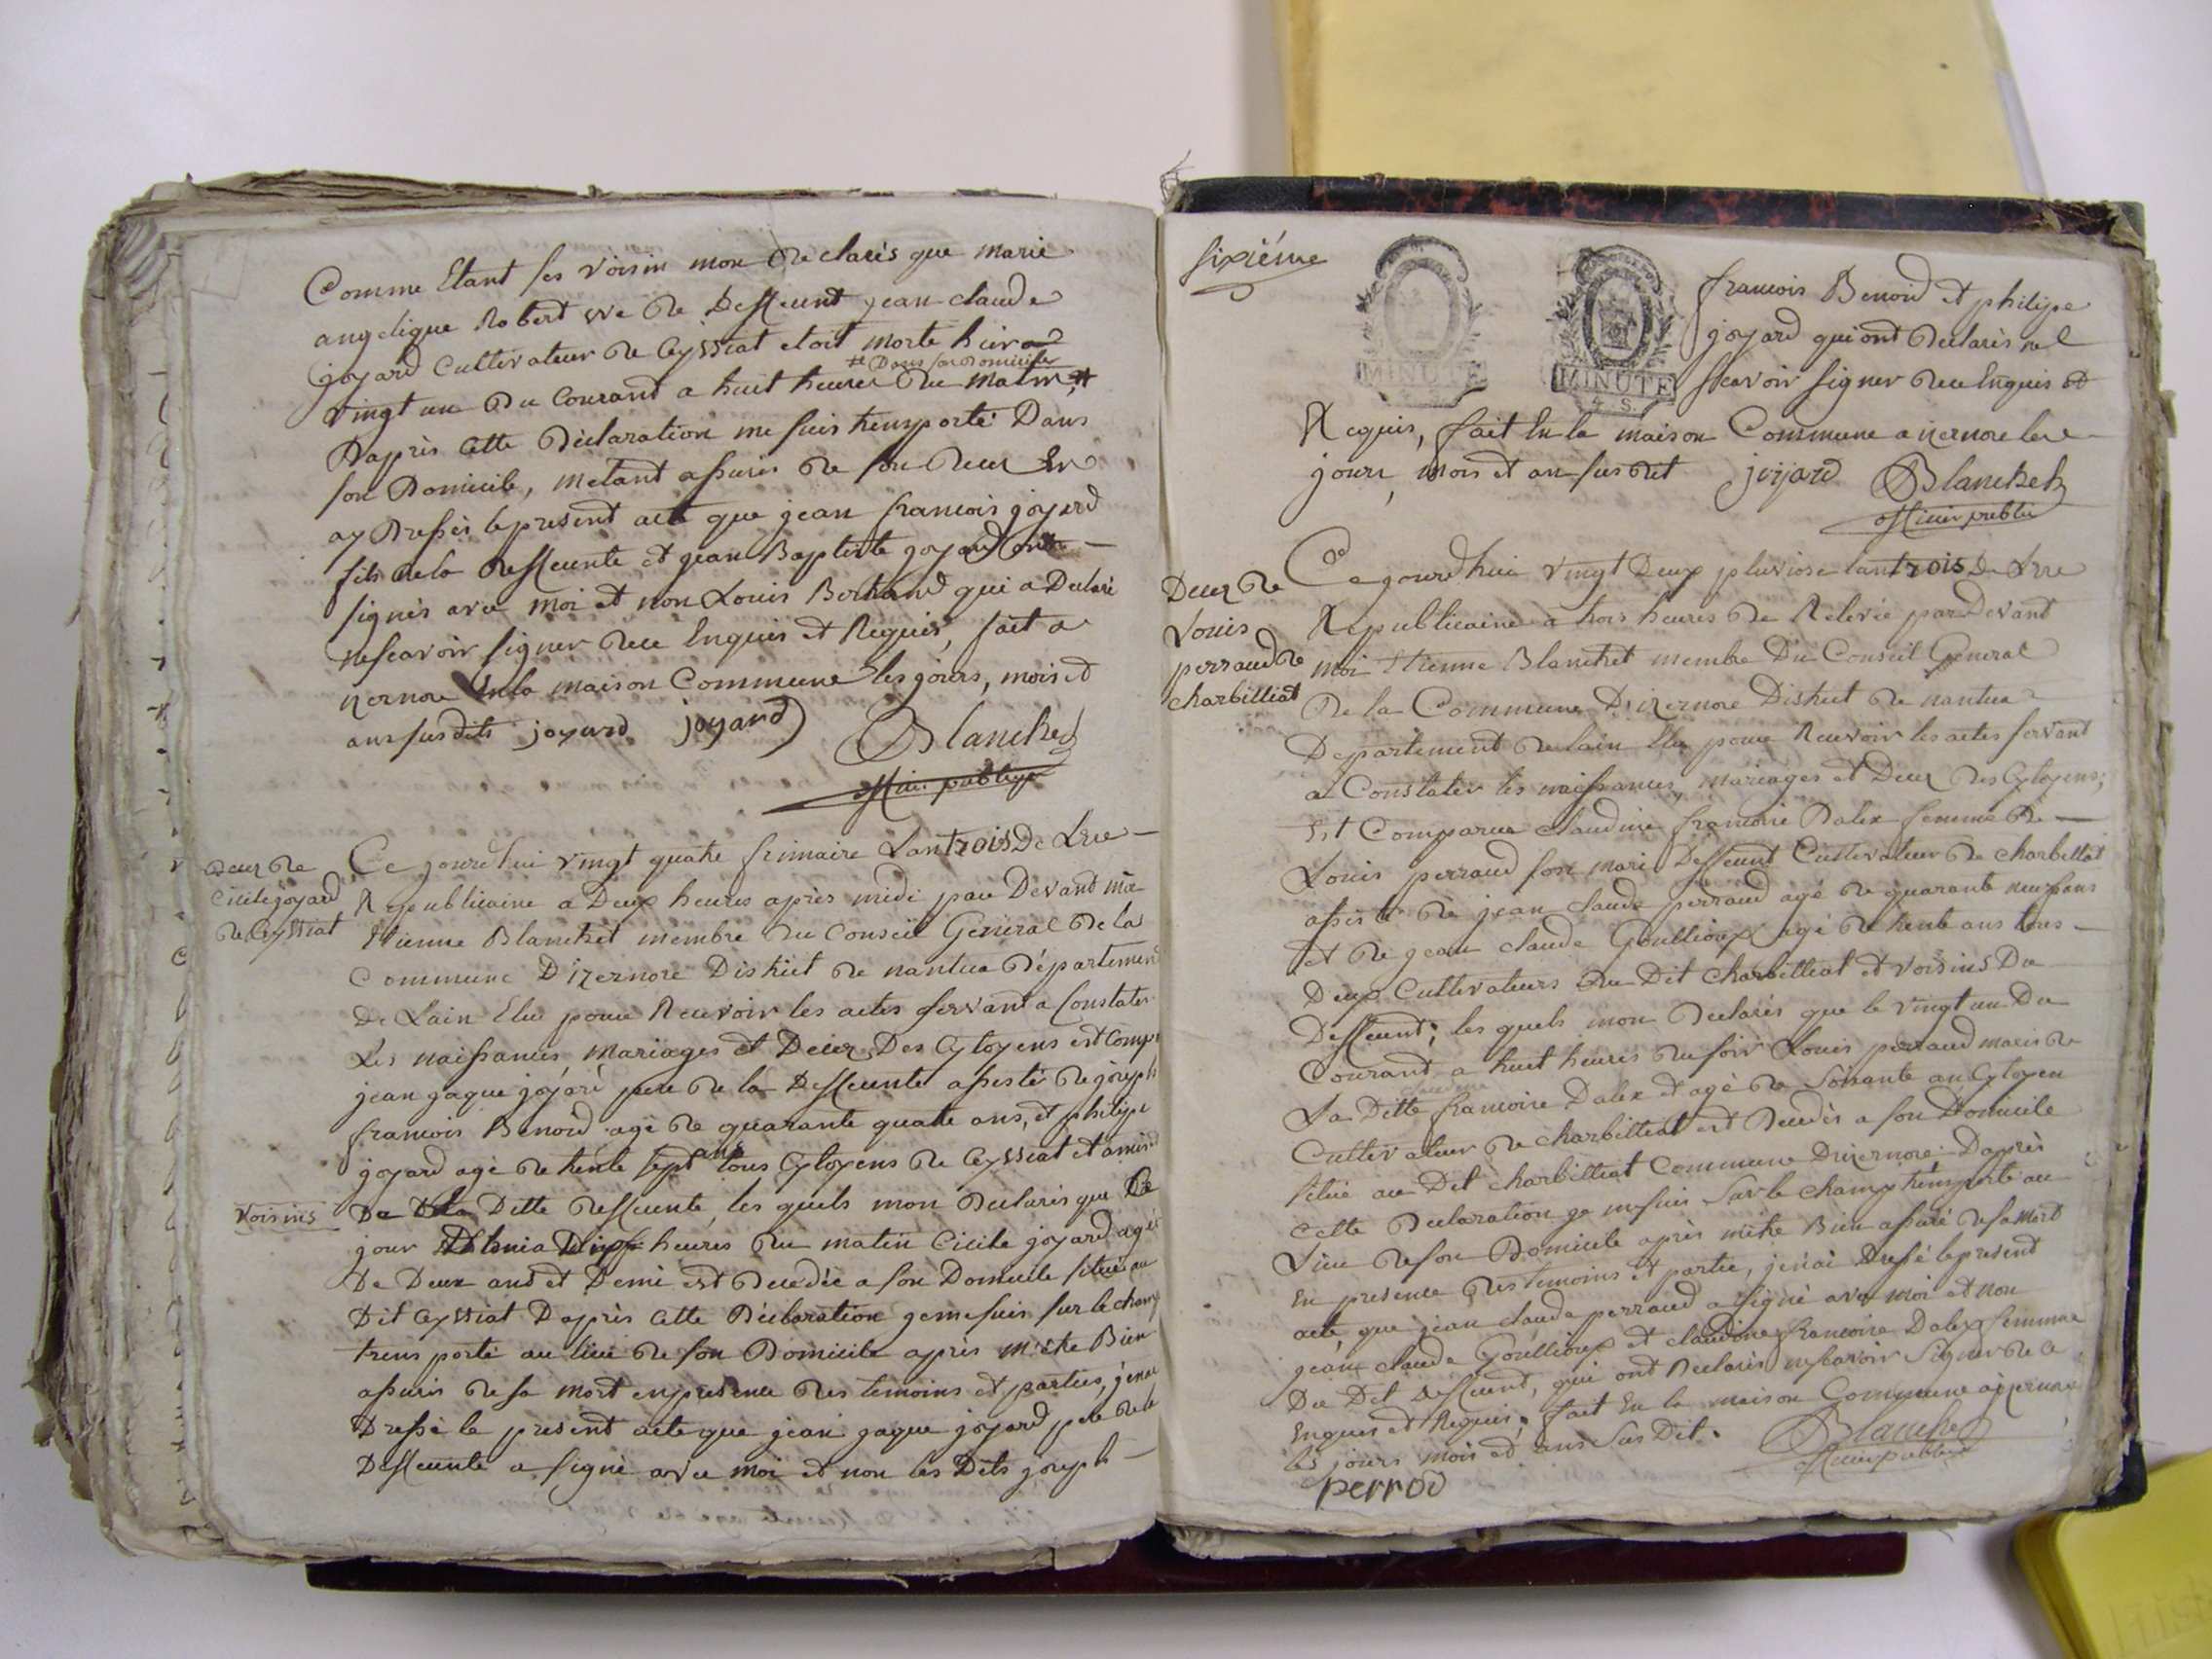 Comme Etant ses voisin mon declarés que marie
angelique Robert vve de deffeunt jean claude
joyard cultivateur de Ceyssiat etoit morte hier
# Dans son domicile
vingt un du Courand a huit heures du matin, #
D'après cette déclaration me suis transporté Dans
son Domicile, metant assurés de son deces En
ay Dressés le present acte que jean francois joyard
fils de la deffeunte et jean Baptiste joyard ont
signés avec moi et non Louis Bertrand qui a Declaré
ne scavoir signer de ce Enquis et Requis, fait a
izernore En la maison Commune les jours, mois et
ans susdits joyard joyard Blanchet
officier publique
Decez de
Cicile joyard
de Ceyssiat
Ce jourd'hui vingt quatre frimaire Lan trois De Lere
Republicaine a Deux heures après midi par Devant moi
Etienne Blanchet membre du Conseil General de la
Commune D'izernore District de nantua département
De Lain Elu pour Recevoir les actes servant a Constater
Les naissances mariages et Decez Des Cytoyens est Comp
jean jaque joyard pere de la Deffeunte assisté de joseph
francois Benoid agé de quarante quatre ans, et philipe
joyard agé de trente sept ans tous Cytoyens de Ceyssiat et amis
voisins
De La Ditte deffeunte, les quels mon declarés que Ce
jour heures du matin Cicile joyard agée
De Deux ans et Demi est decedée a son Domicile situé au
Dit Ceyssiat D'après cette Déclaration je me suis sur le champ
transporté au lieu de son Domicile après m'etre Bien
assurés de sa mort en presence des temoins et parties, j'en ai
Dressé le present acte que jean jaque joyard pere de la
Deffeunte a signé avec moi et non les Dits joseph
sixiéme
MINUTE
MINUTE
4 S.
francois Benoid et philipe
joyard qui ont declarés ne
scavoir signer de ce Enquis et
Requis, fait En la maison Commune a izernore les
jours, mois et an susdit joyard Blanchet
officier public
Decez de
Louis
perraud de
charbilliat
Ce jourd'hui vingt Deux pluviose lan trois De Lere
Republicaine a trois heures de Relevée par Devant
moi Etienne Blanchet membre Du Conseil General
De la Commune D'izernore District de nantua
Departement de lain Elu pour Recevoir les actes servant
a Constater les naissances, mariages et Decez des Cytoyens;
Est Comparue claudine francoise Dalex femme de
Louis perraud son mari Deffeunt Cultivateur de charbilliat
assisté de jean claude perraud agé de quarante neuf ans
et de jean claude Goullioux agé de trente ans tous
Deux Cultivateurs du Dit Charbilliat et voisins Du
Deffeunt; les quels mon declarés que le vingt un Du
Courand a huit heures du soir Louis perraud mari de
claudine
La Ditte francoise Dalex et agé de Soisante an Cytoyen
Cultivateur de charbilliat est decedés a son Domicile
situé au Dit charbilliat Commune D'izernore. D'après
cette declaration je me suis Sur le champ transporté au
Lieu de son Domicile après m'etre Bien assuré de sa mort
En presence des temoins et partie, j'en ai dressé le present
acte que jean claude perraud a signé avec moi et non
jean claude Goullioux et claudine francoise Dalex femme
Du Dit deffeunt, qui ont declarés ne scavoir Signer de ce
Enquis et Requis. fait En la maison Commune a izernore
les jours mois et ans Sus Dit. Blanchet
perrod officier publique